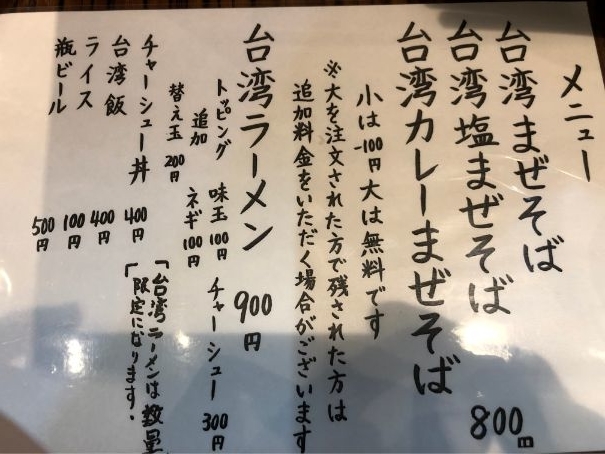 メニュー
台湾まぜそば
台湾塩まぜそば
台湾カレーまぜそば
800円
小は-100円大は無料です
※大を注文された方で残された方は
追加料金をいただく場合がございます
台湾ラーメン 900円
トッピング 味玉100円 チャーシュー300円
追加 ネギ100円
替え玉200円
「台湾ラーメンは数量
限定になります。
チャーシュー丼 400円
台湾飯 400円
ライス 100円
瓶ビール 500円